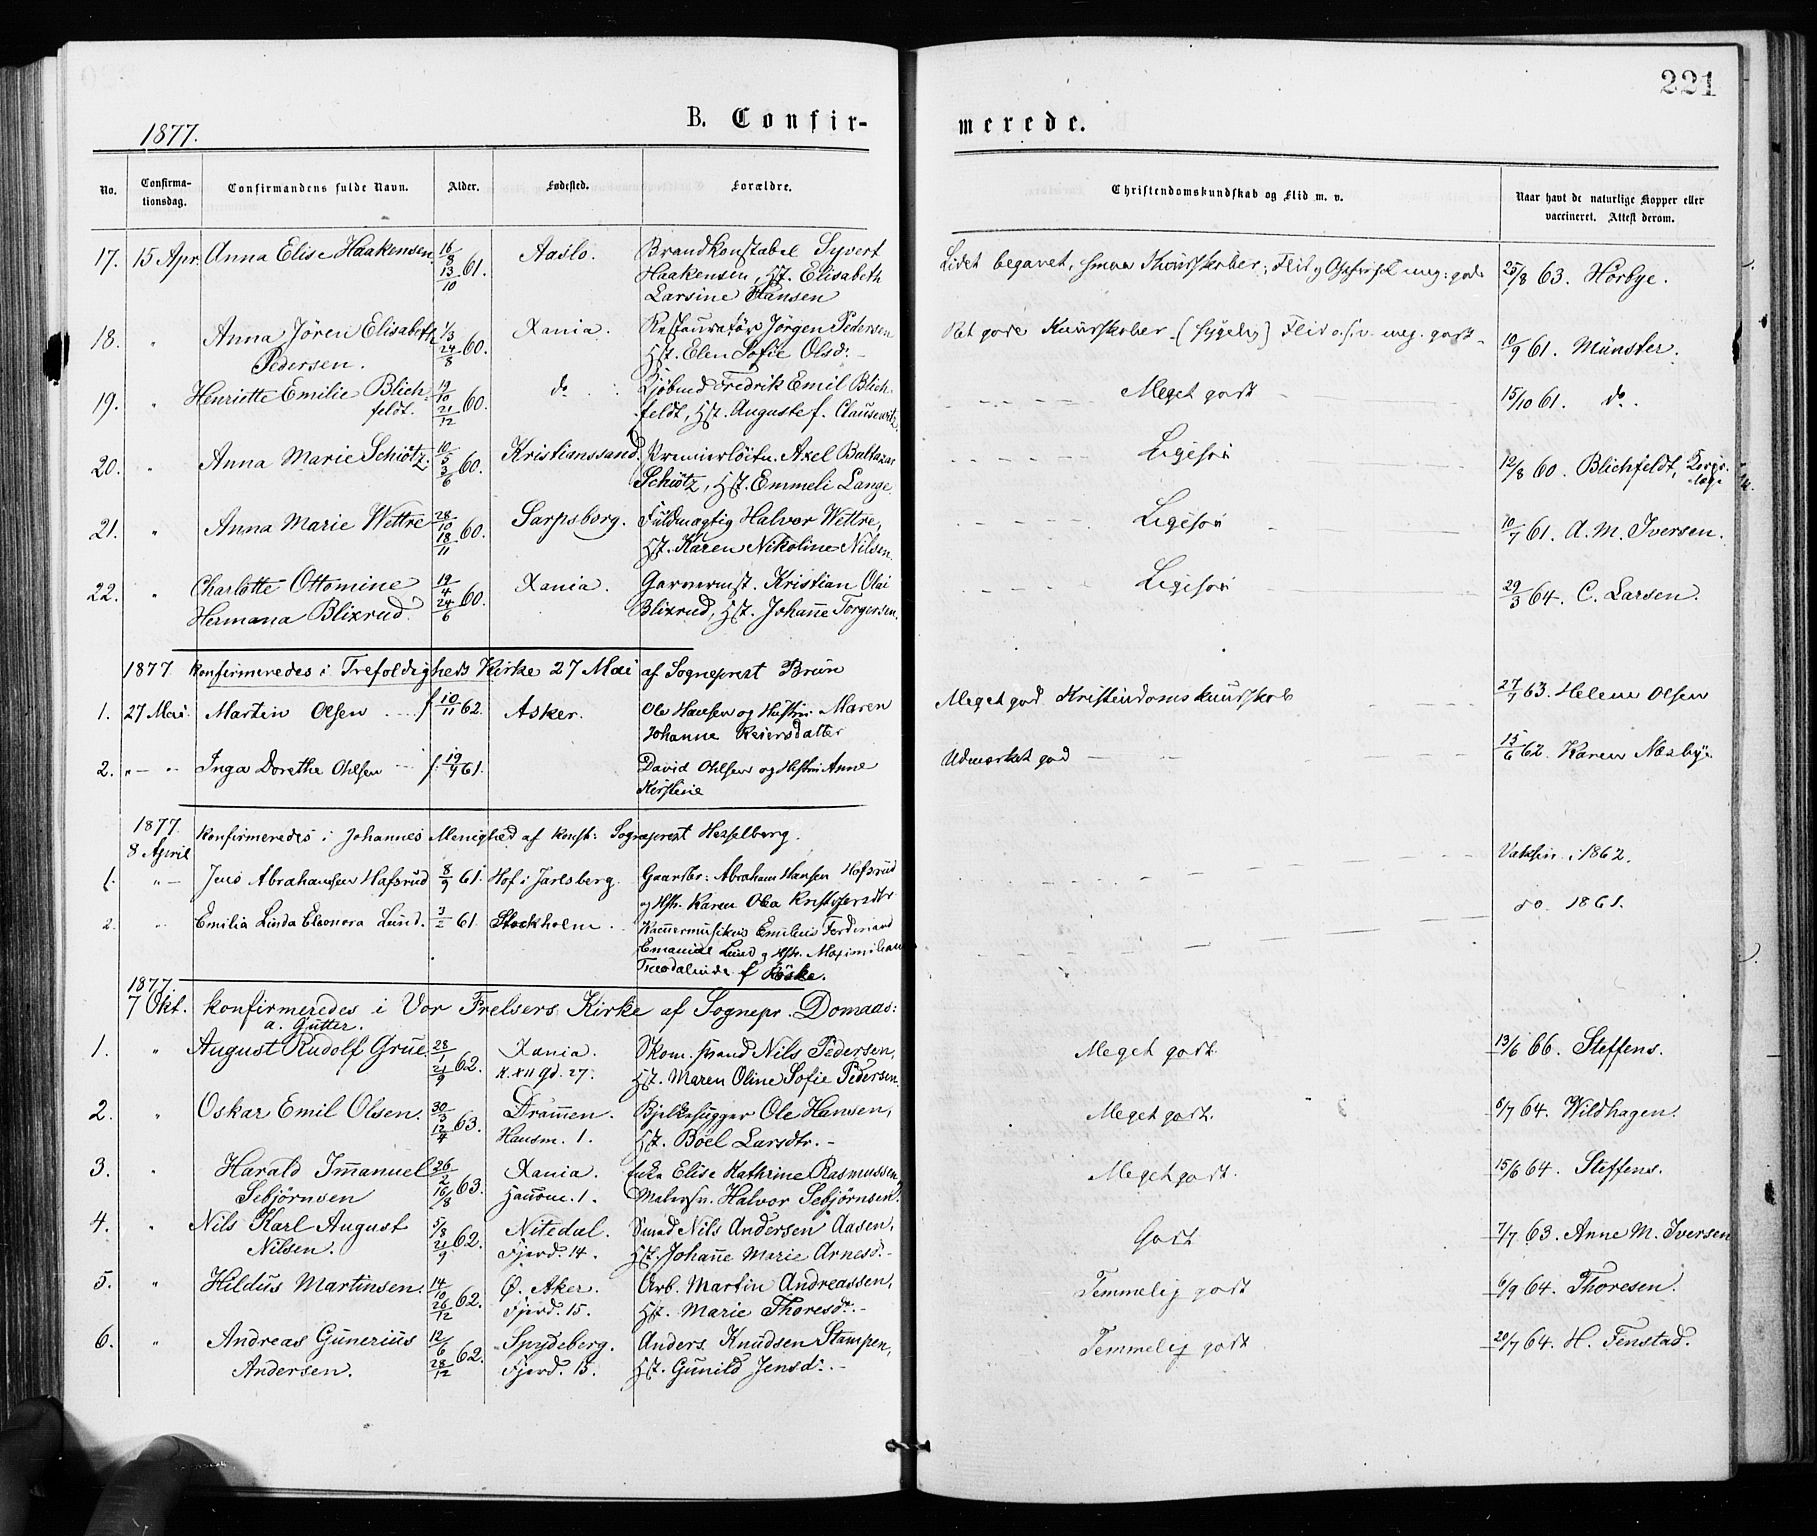 221
1877.
B. Confir-
merede.
No.
Confirma-
tionsdag.
Confirmandens fulde Navn.
Alder.
Fødested.
Forældre.
Christendomskundskab og Flid m. v.
Naar havt de naturlige Kopper eller
vaccineret. Attest derom.
17. 15 Apr. Anna Elise Haakensen. 16/8 13/10 61. Aaslo. Brandkonstabel Syvert
Haakensen, Hst. Elisabeth
Larsine Hansen
Lidet begavet, smaa Kundskaber; Flid og Opførsel meg: god. 25/8 63. Hørbye.
18. " Anna Jören Elisabeth 1/3 24/8 60. Xania. Restauratör Jörgen Pedersen
Pedersen. Hst. Elen Sofie Olsd: -
Ret gode Kundskaber - (sygelig) Flid o.s.v. meg. godt - 10/9 61. Münster.
19. " Henriette Emilie Blich- 19/10 21/12 60. do. Kjöbmd Fredrik Emil Blich-
feldt. feldt, Hst. Auguste f. Clausewitz.
Meget godt 15/10 61. do.
20. " Anna Marie Schiötz. 10/5 3/6 60. Kristianssand. Premierlöitn. Axel Baltazar
Schiötz, Hst. Emmeli Lange.
Ligesaa 12/8 60. Blichfeldt, Korps-
læge
21. " Anna Marie Wettre 28/10 18/11 60. Sarpsborg. Fuldmægtig Halvor Wettre,
Hst. Karen Nikoline Nilsen.
Ligesaa 10/7 61. A. M. Iversen.
22. " Charlotte Ottomine 19/4 24/6 60. Xania. Garvermst. Kristian Olai
Hermana Blixrud. Blixrud, Hst. Johanne Torgersen.
Ligesaa 29/3 64. C. Larsen.
1877. Konfirmeredes i Trefoldigheds Kirke 27 Mai af Sogneprest Brun
1. 27 Mai. Martin Olsen f. 10/11 62. Asker. Ole Hansen og Hustru Maren
Johanne Reiersdatter
Meget god Kristendomskundskab 27/7 63. Helene Olsen
2. " — " Inga Dorethe Ohlsen f. 19/9 61. David Ohlsen og Hustru Anne
Kirstine
Udmærket god 15/6 62. Karen Næsbye
1877.
8 April Konfirmeredes i Johannes Menighed af Konst: Sogneprest Hesselberg.
1. " — Jens Abrahamsen Hafsrud 8/9 61. Hof i Jarlsberg. Gaardbr: Abraham Hansen Hafsrud
og Hst. Karen Olea Kristofersdtr
Vaksin. i 1862.
2. " Emilia Linda Eleonora Lund. 3/2 61. Stockholm. Kammermusikus Emilius Ferdinand
Emanuel Lund og Hst. Maximiliane
Theodalinde f. Röske.
do. 1861.
1877.
7 Okt. Konfirmeredes i Vor Frelsers Kirke af Sognepr. Domaas:
a. Gutter.
1. " August Rudolf Grue. 28/1 21/9 62. Xania. Skom. svend Nils Pedersen,
K. XII gd. 27. Hst. Maren Oline Sofie Pedersen.
Meget godt. 13/6 66. Steffens.
2. " Oskar Emil Olsen. 30/3 12/4 63. Drammen. Bjelkehugger Ole Hansen,
Hausm. 1. Hst. Böel Larsdtr. -
Meget godt. 6/7 64. Wildhagen.
3. " Harald Immanuel 26/2 16/8 63. Xania. Enke Elise Kathrine Rasmussen
Sebjörnsen Hausm. 1. Malersv. Halvor Sebjörnsen.
Meget godt. 15/6 64. Steffens.
4. " Nils Karl August 5/8 21/9 62. Nitedal. Smed Nils Andersen Aasen,
Nilsen. Fjerd. 14. Hst. Johanne Marie Arnesd: -
Godt 7/7 63. Anne M. Iversen
5. " Hildus Martinsen. 14/10 26/12 62. Ø. Aker. Arb. Martin Andreassen,
Fjerd. 15. Hst. Marie Thoresdr. -
Temmelig godt 6/9 64. Thoresen.
6. " Andreas Gunerius 12/6 28/12 62. Spydeberg. Anders Knudsen Stampen,
Andersen. Fjerd. 15. Hst. Gunild Jensdr. -
Temmelig godt. 20/7 64. H. Fenstad.